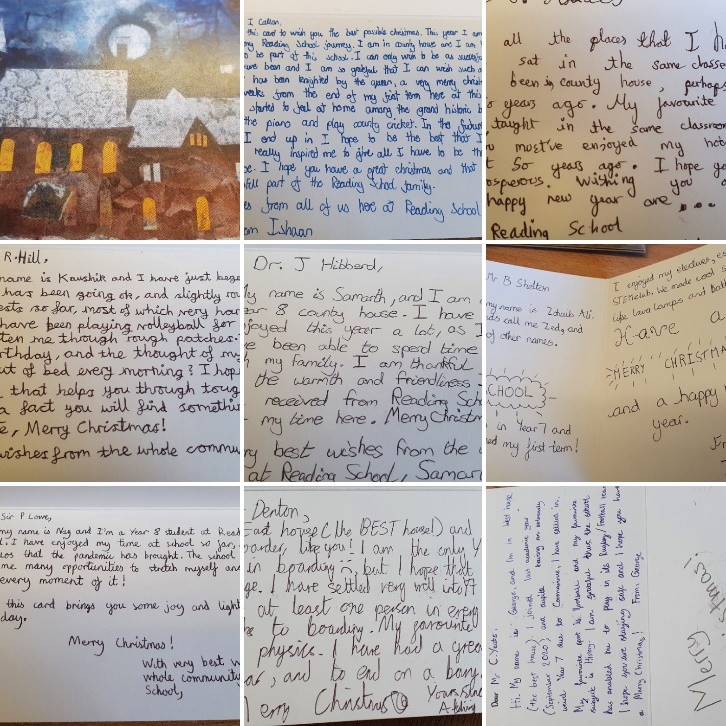 I Callan,
this card to wish you the best possible christmas. This year I am
my Reading School journey. I am in county house and I am
to be part of this school. I can only wish to be as
have been and I am so grateful that I can wish such a
has been knighted by the queen, a very merry
weeks from the end of my first term here at this
started to at home among the grand historic
the piano and play county cricket. In the future
I end up in I hope to be the best that I
really inspired me to give all I have to be the
I hope you have a great christmas and that
part of the Reading School family.
es from all of us here at Reading School
Ishaan
all the places that I
sat in the same classe
been in county house, perhaps
years ago. My favourite
taught in the same classroom
must've enjoyed my
50 years ago. I hope yo
osperous. Wishing you
happy new year are ....
Reading School
R. Hill,
name is Kaushik and I have just beg
has been going ok, and slightly
ests so far, most of which very har
have been playing volleyball for
ten me through rough patches.
rthday, and the thought of my
ut of bed every morning? I hop
that helps you through toug
a fact you will find somethi
e, Merry Christmas!
wishes from the whole commu
Dr. J Hibberd,
y name is Samarth, and I am
ear 8 county house. I have
joyed this year a lot, as I
ve been able to spend time
my family. I am thankful
the warmth and friendliness
received from Reading Sch
my time here. Merry Christm
ry best wishes from the
at Reading School, Samar
Mr B Shelton
my name is Zohaib Ali.
nds call me Zed, and
of other names.
CHOOL
in Year 7 and
ed my first term!
I enjoyed my electives, es
STEM club. We made cool s
like lava lamps and bath
Have a
MERRY CHRISTMA
and a happy
year.
Fr
Sir P Lowe,
my name is and I'm a Year 8 student at Read
I have enjoyed my time at school so far,
os that the pandemic has brought. The school
me many opportunities to stretch myself an
every moment of it!
this card brings you some joy and light
day.
Merry Christmas!
With very best w
whole community
School,
Denton,
East house (the BEST house!) and
boarder, like you! I am the only Y
in boarding :, but I hope that
ge. I have settled very well into
at least one person in every
to boarding. My favourite
physics. I have had a grea
ar, and to end on a bang.
Merry Christmas
Yours
Dear Mr C Yeats.
Hi. My name is George, and I'm in West house
(the best house). I joined last academic year
(September 2020) and despite having an extremely
weird Year 7 due to Coronavirus, I have settled in.
My favourite sport is football and my favourite
subject is History. I am grateful that the school
has enabled me to play in its Rugby/Football team
I hope you are staying safe and I hope you have
a Merry Christmas! From: George
Merry